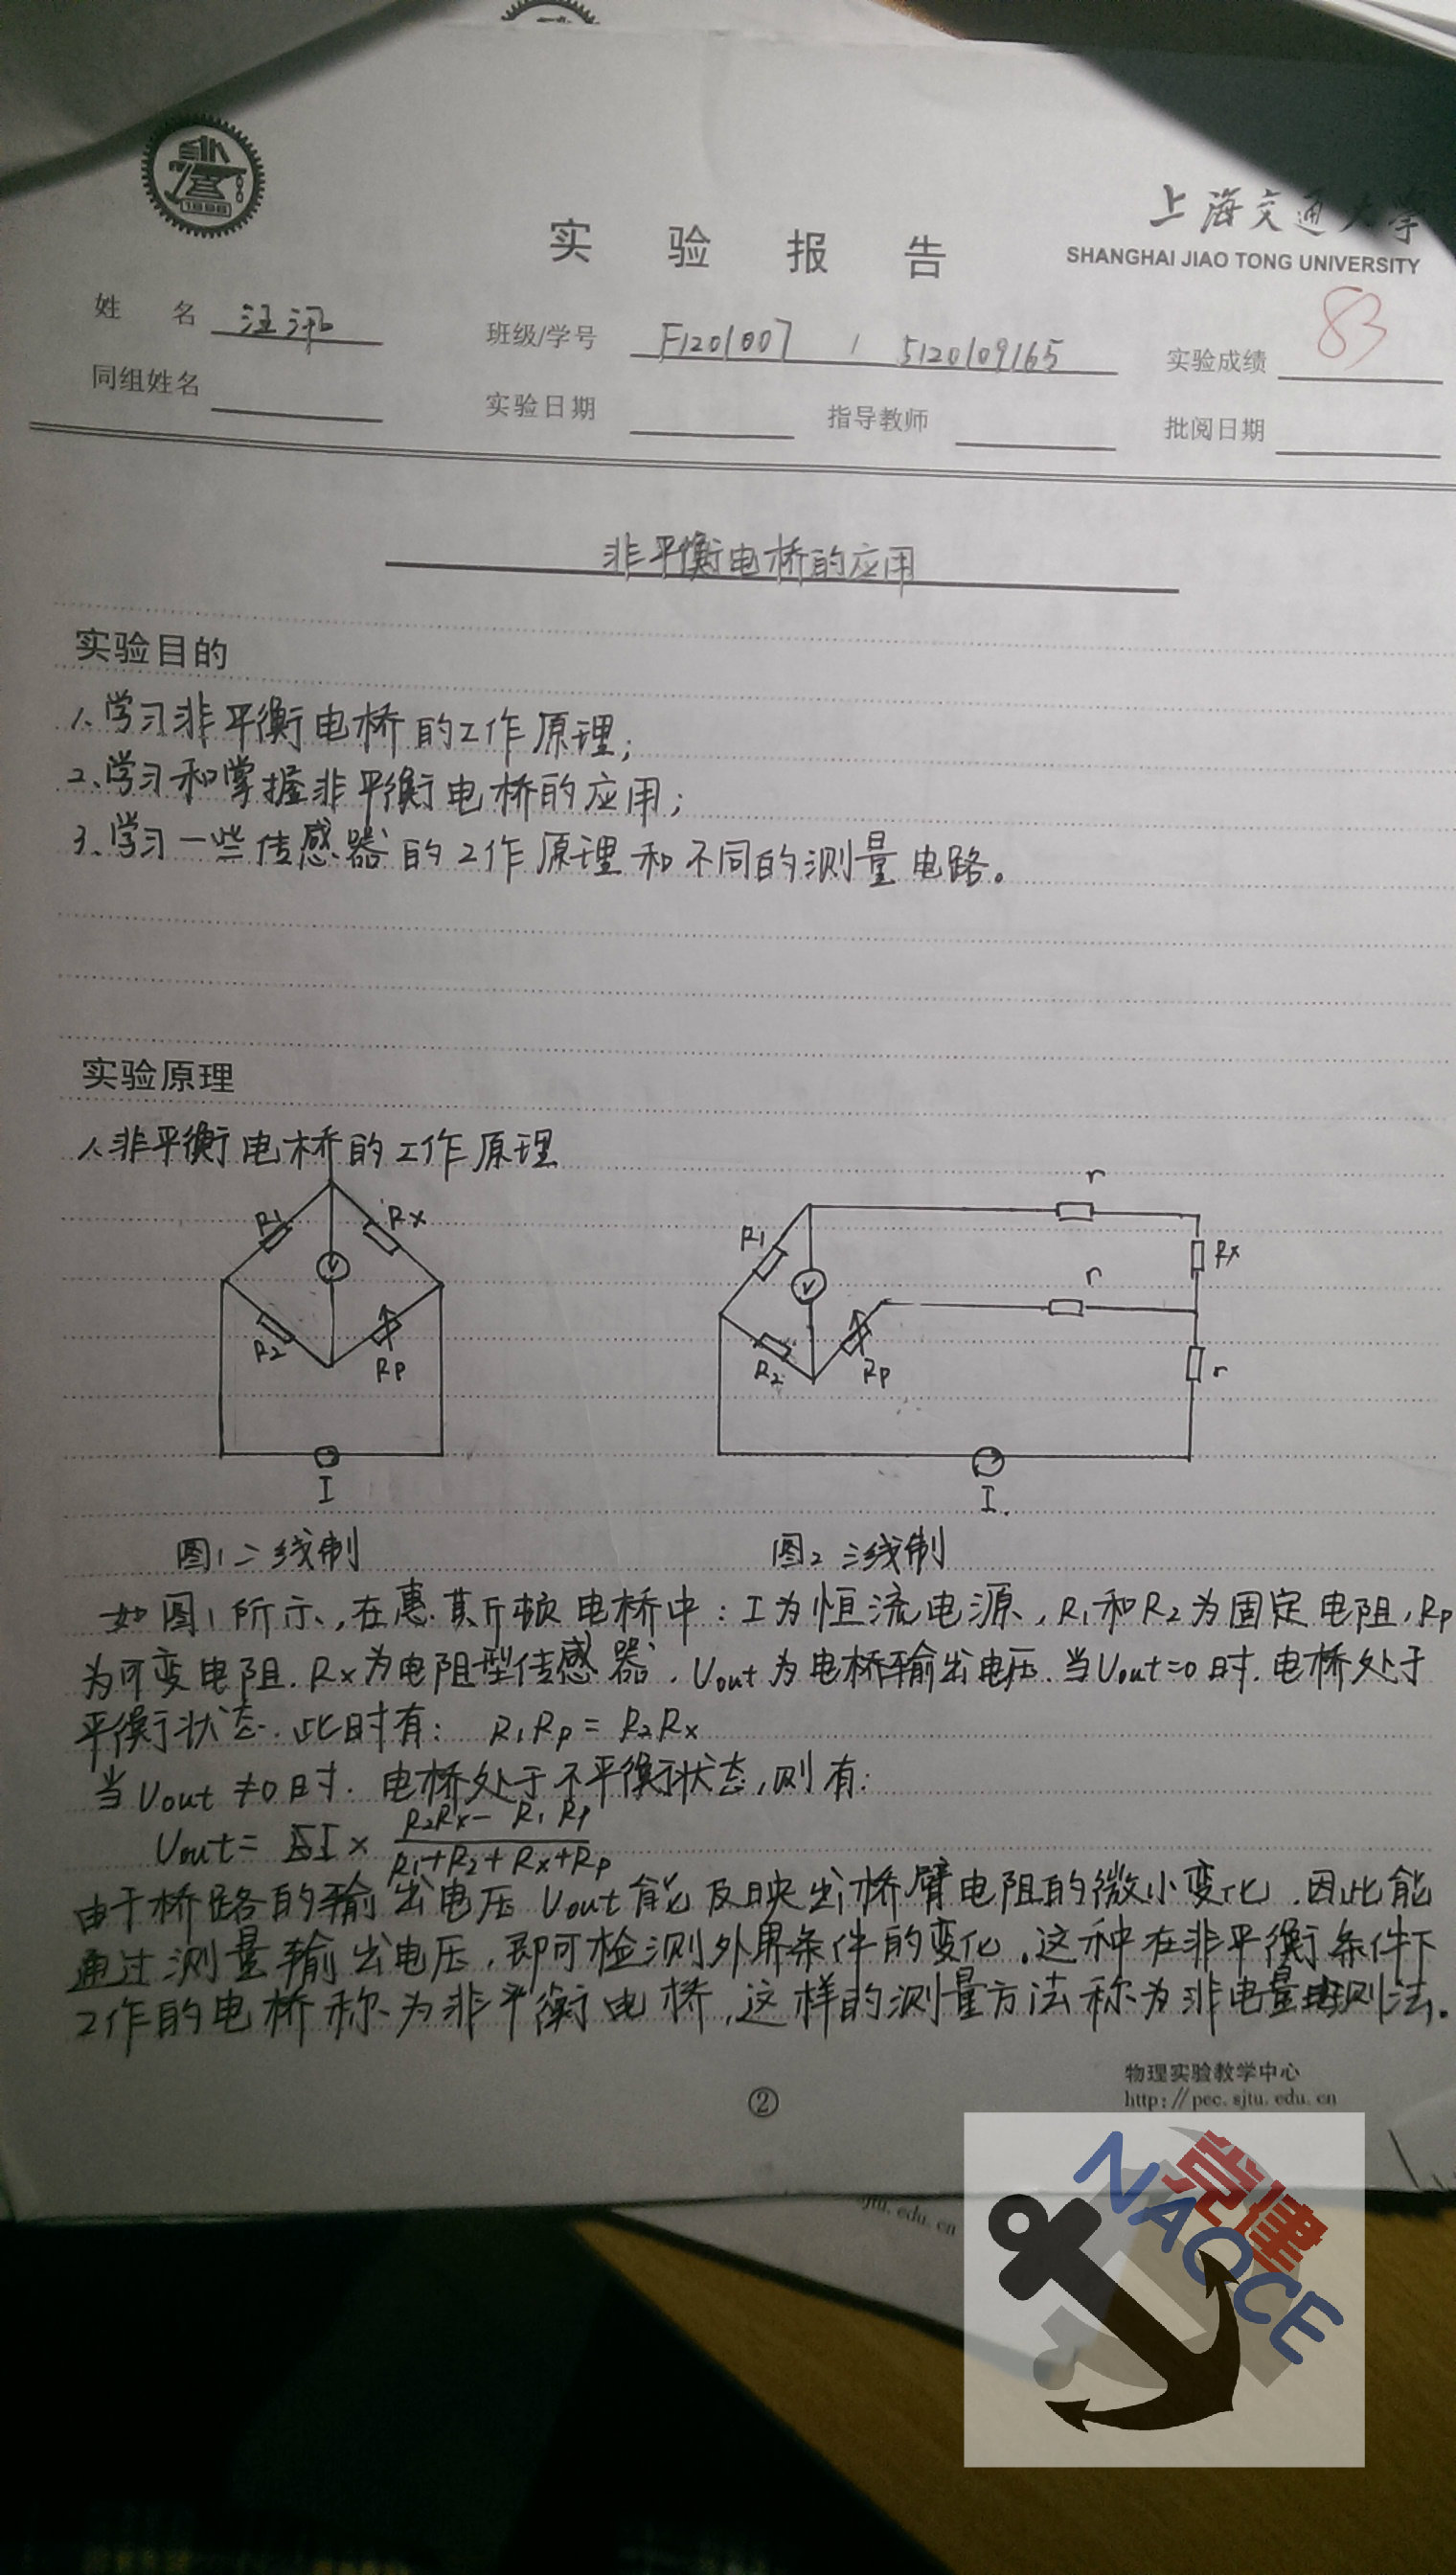 1896
上海交通大学
SHANGHAI JIAO TONG UNIVERSITY
实验报告
姓名 汪汛 班级/学号 F1201007 / 5120109165 实验成绩 83
同组姓名 实验日期 指导教师 批阅日期
非平衡电桥的应用
实验目的
1、学习非平衡电桥的工作原理;
2、学习和掌握非平衡电桥的应用;
3、学习一些传感器的工作原理和不同的测量电路。
实验原理
1、非平衡电桥的工作原理
R1 Rx
V
R2 Rp
I
r
R1 Rx
r
V
R2 Rp r
I
图1 二线制 图2 三线制
如图1所示,在惠斯顿电桥中:I为恒流电源,R1和R2为固定电阻,Rp
为可变电阻.Rx为电阻型传感器.Uout为电桥输出电压.当Uout=0时.电桥处于
平衡状态.此时有: R1Rp = R2Rx
当Uout≠0时.电桥处于不平衡状态,则有:
Uout = I × (R2Rx - R1Rp)/(R1+R2+Rx+Rp)
由于桥路的输出电压Uout能反映出桥臂电阻的微小变化.因此能
通过测量输出电压,即可检测外界条件的变化.这种在非平衡条件下
工作的电桥称为非平衡电桥,这样的测量方法称为非电量电测法.
物理实验教学中心
②
http://pec.sjtu.edu.cn
jtu.edu.cn
党建
NAOCE